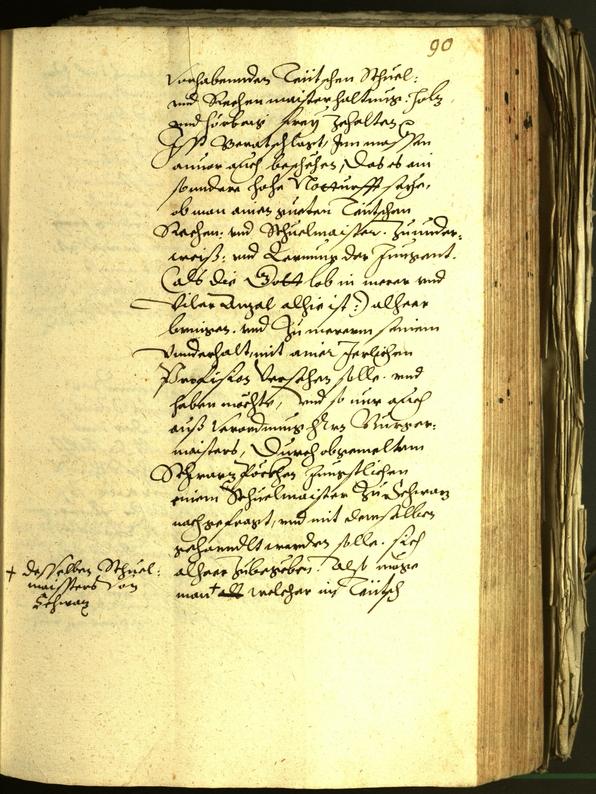 90
vorhabennden Teütschen Schuel:
und Rechenmaisterhaltung. holz
und hörberg frey zehalten
Ist Beratschlagt, Inn massen
zuuor auch beschehen, Das es ain
sonndere hohe Notturfft seye,
ob man ainen gueten Teütschen
Rechen: und Schuelmaister. zu under-
weiß: und Lernung der Jungent.
(als die Gott lob in merer und
viler Anzal alhie ist:) alheer
bringen. und Zu mererm seinem
Underhalt, mit ainer Jerlichen
Provision versehen solle. und
haben möchte, und so nun auch
auß verordnung hern Burger-
maisters, Durch obgemeltem
Jüngstlichen
einem Schuelmaister Zu Schwaz
nachgefragt, und mit demselben
gehanndlt werden solle. sich
alheer zubegeben. Also möge
man + welcher inn Teütsch
+ desselben Schuel-
maisters von
Schwaz